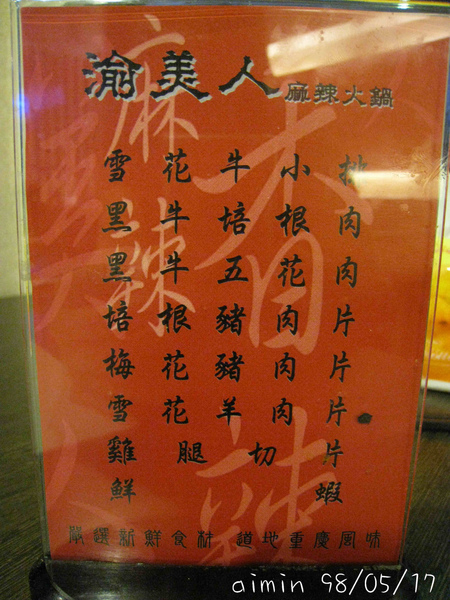 渝美人 麻辣火鍋
雪花牛小排
黑牛培根肉
黑牛五花肉
培根豬肉片
梅花豬肉片
雪花羊肉片
雞腿切片
鮮蝦
嚴選新鮮食材 道地重慶風味
麻辣
香
辣
aimin 98/05/17